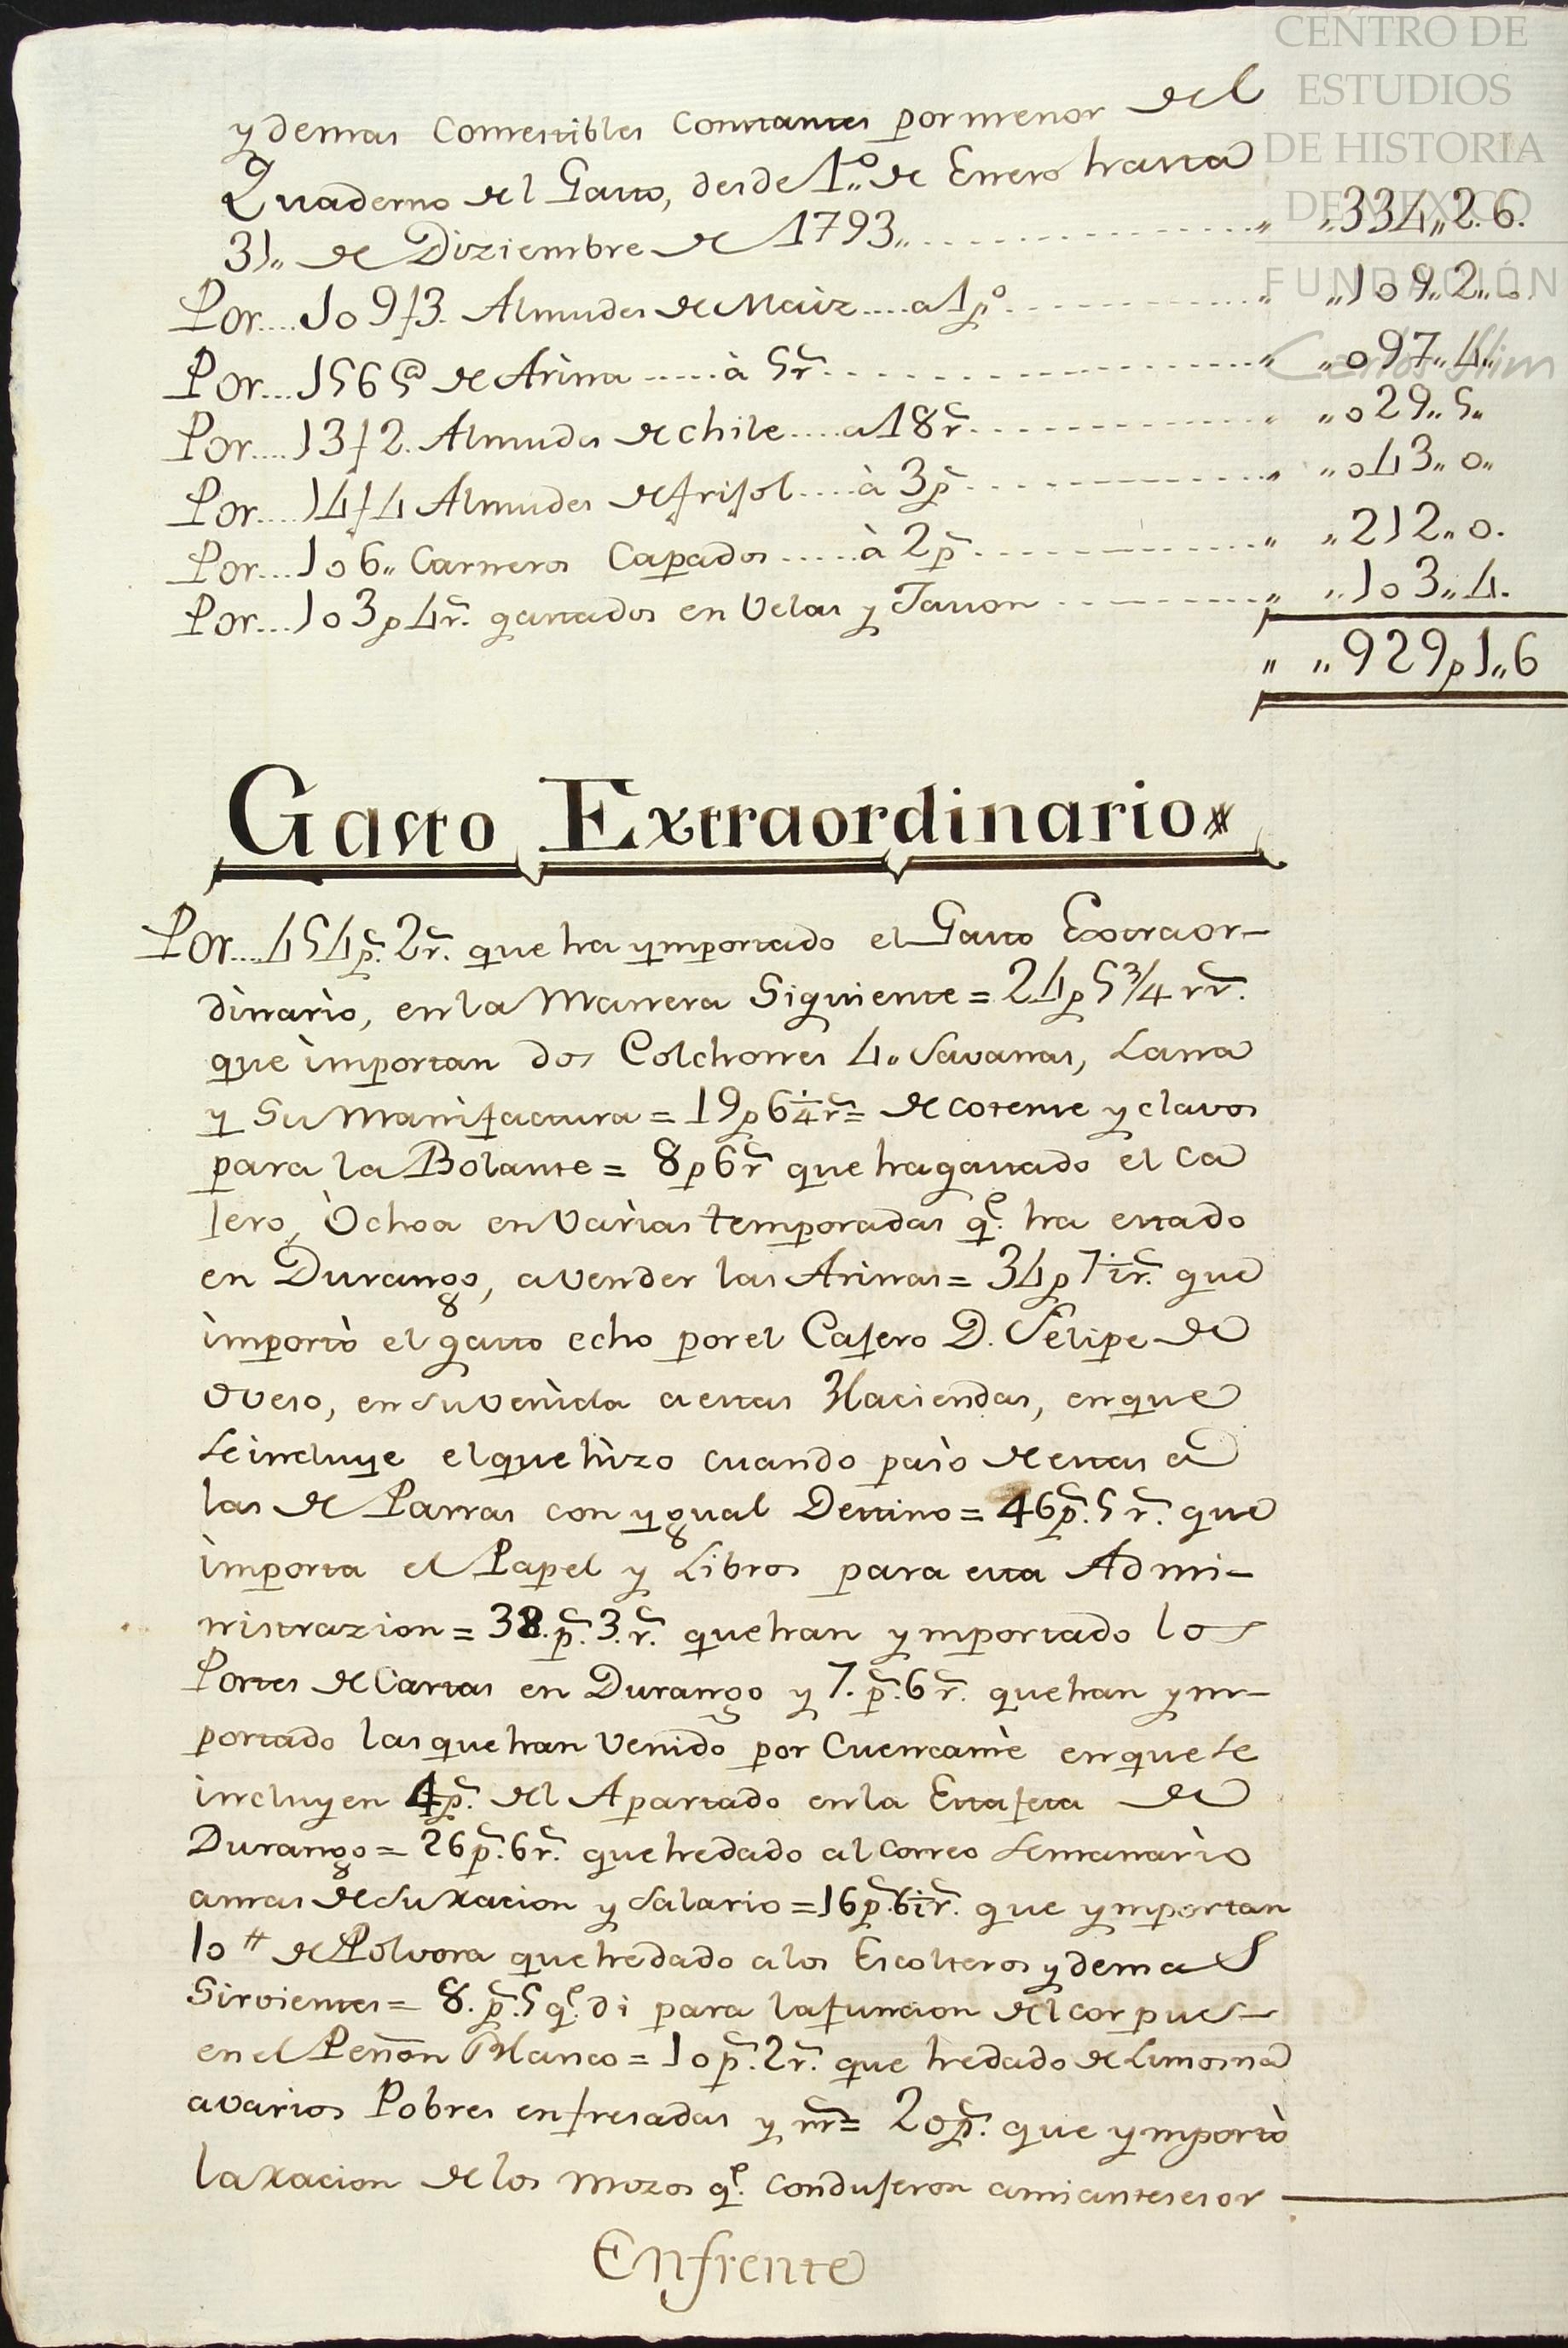 CENTRO DE
ESTUDIOS
DE HISTORIA
DE MEXICO
FUNDACIÓN
Carlos Slim
y demas Comestibles Constantes por menor del
Quaderno del Gasto, desde 1.,º de Enero hasta
31,, de Diziembre de 1793,, ,, ,,334,,2.6.
Por....109f3. Almudes de Maiz....a 1pº ,, ,,109,,2,,0.
Por...156@ de Arina......à 5r.s ,, ,,097,,4,,
Por....13f2. Almudes de chile....a 18r.s ,, ,,029,,5,,
Por....14f4 Almudes de frisol....à 3p.s ,, ,,043,,0,,
Por...106,, Carneros Capados.....à 2p.s ,, ,,212,,0.
Por...103p4r.s gastados en Velas y Jauon ,, ,,103,,4.
,, ,,929p1,,6
Gasto Extraordinario
Por....454p.s 2r.s que ha ymportado el Gasto Extraor-
dinario, en la Manera Siguiente = 24p5 3/4 rr.s
que importan dos Colchones 4,, Savanas, Lana
y Su Manifactura = 19p6 1/4 r.s = de cotense y clavos
para la Bolante = 8p6r.s que ha gastado el ca
jero, Ochoa en Varias temporadas q.e ha estado
en Durango, a vender las Arinas = 34p7 1/2 r.s que
importò el gasto echo por el Cajero D. Felipe de
Oveso, en su venida a estas Haciendas, en que
se incluye el que hizo cuando pasò de estas a
las de Parras con ygual Destino = 46p.s 5r.s que
importa el Papel y Libros para esta Admi-
nistrazion = 38.p.s 3.r.s que han ymportado los
Portes de Cartas en Durango y 7.p.s 6r.s que han ym-
portado las que han Venido por Cuencamè en que se
incluyen 4p.s del Apartado en la Estafeta de
Durango = 26p.s 6r.s que he dado al correo semanario
a mas de su racion y salario = 16p.s 6 1/2 r.s que ymportan
10 # de Polvora que he dado a los Escolteros y demas
Sirvientes = 8.p.s 5 q.e di para la funcion del corpus
en el Peñon Blanco = 10p.s 2r.s que he dado de Limosna
a varios Pobres en fresadas y m.s = 20p.s que ymportò
la racion de los Mozos q.e condujeron a mi antesesor
Enfrente